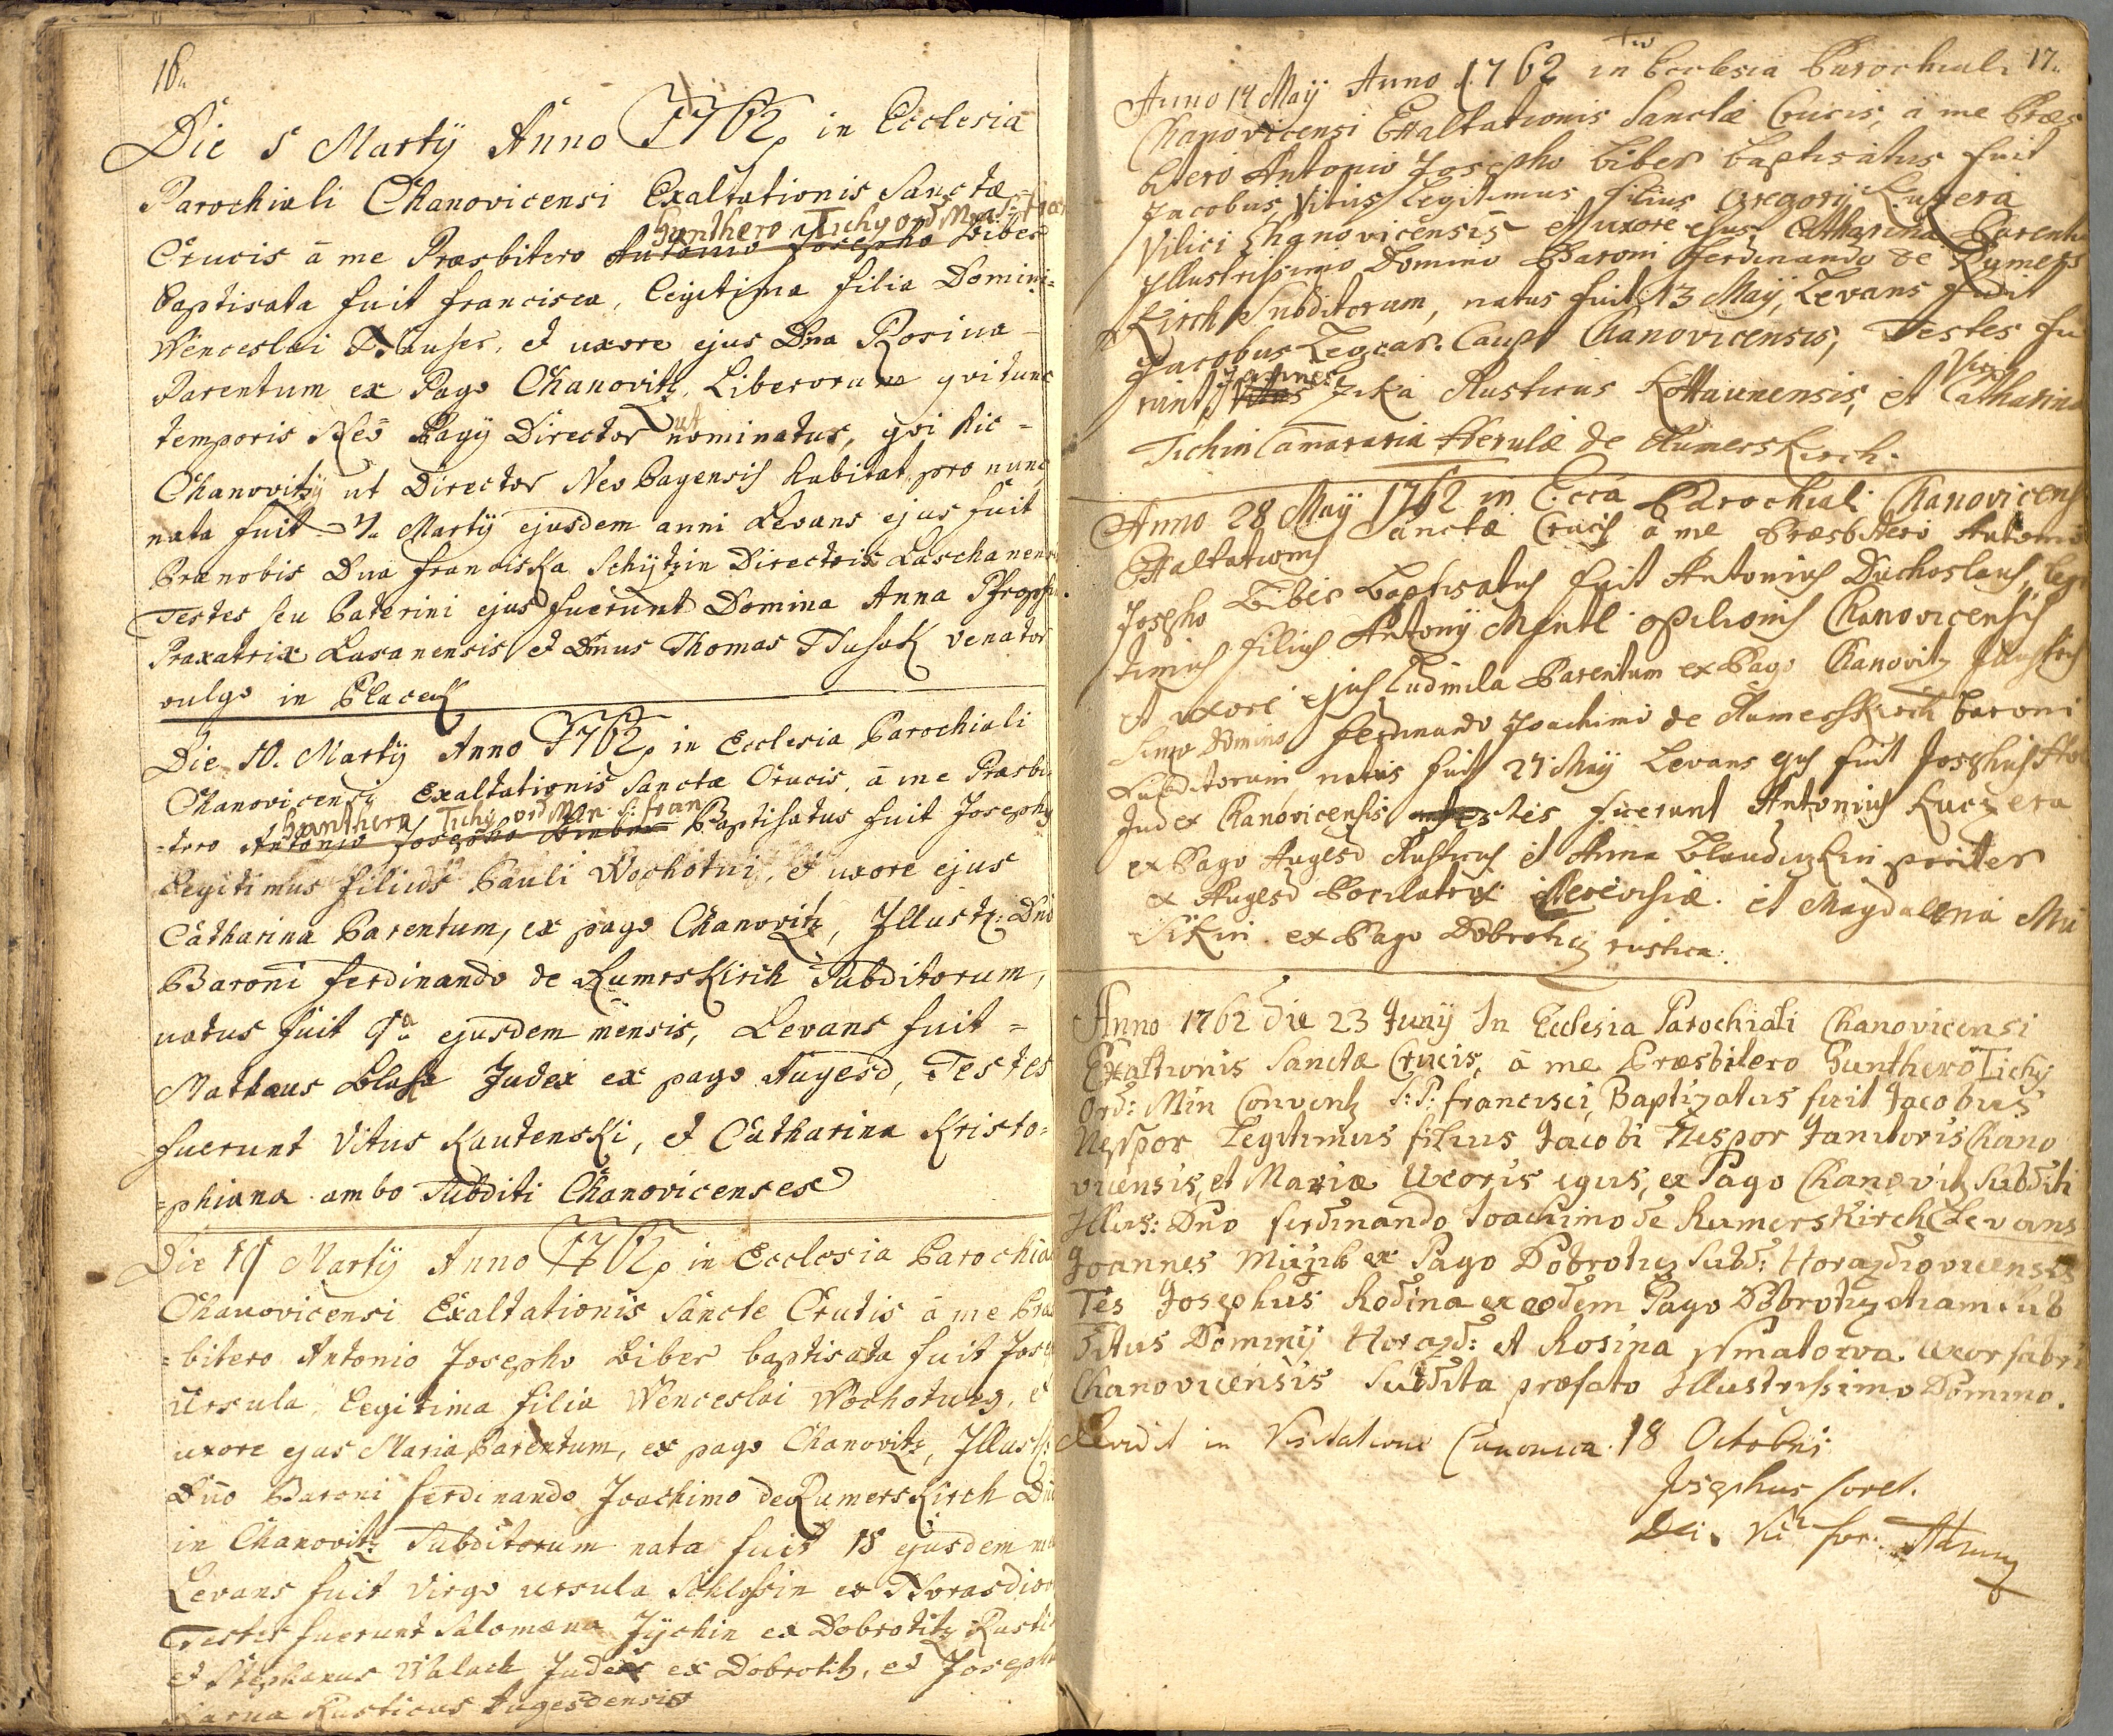 16.
Die 5 Martÿ Anno 1762 in Ecclesia
Parochiali Chanovicensi Exaltationis Sanctæ
Gunthero Tichy ord Min: S: Fran
Crucis â me Præsbitero Antonio Josepho Biber
baptisata fuit Francisca, legitima filia Domini
Wenceslai Hauser, et uxore ejus Dna Rosina
Parentum ex Pago Chanovitz, Liberorum qui tunc
temporis Neo Pagÿ Director ut nominatus, qvi hic =
Chanovitzÿ ut Director Neo Pagensis habitat, pro nunc
nata fuit 4. Martÿ ejusdem anni Levans ejus fuit
Prænobis Dna Franciska Schÿtzin Directrix
Testes seu Paterini ejus fuerunt Domina Anna
Praxatrix Lasanensis et Dnus Thomas Husak venator
vulgo in Placek
Die 10. Martÿ Anno 1762 in Ecclesia Parochiali
Chanovicensi Exaltationis Sanctæ Crucis, â me Præsbi
Gunthero Tichy ord Min: S: Fran
=tero Antonio Josepho Biber Baptisatus fuit Josephus
Legitimus filius Pauli Wochotni, et uxore ejus
Catharina Parentum, ex pago Chanovitz, Illustr: Dno
Baroni Ferdinando de RumrsKirch Subditorum,
natus fuit 9a ejusdem mensis, Levans fuit =
Mathæus Blaha Judex ex pago Augesd, Testes
fuerunt Vitus KautensKi, et Catharina Kristo=
=phiana ambo Subditi Chanovicenses
Die 19 Martÿ Anno 1762 in Ecclesia Parochia
Chanovicensi Exaltationis Sancte Crutis â me Præs
=bitero Antonio Josepho Biber baptisata fuit Jos
Ursula, Legitima filia Wenceslai Wochotnÿ, et
uxore ejus Maria Parentum, ex pago Chanovitz, Illust:
Dno Baroni Ferdinando Joachimo de RumersKirch Dn
in Chanovitz Subditorum nata fuit 18 ejusdem m
Levans fuit Virgo Ursula Schlossin ex Horasdio
Testes fuerunt Salomæna Jÿchin ex Dobrotitz Rusti
et Stephanus Walach Judex ex Dobrotitz, et Joseph
Rusticus Augesdensis
17.
Anno 14 Maÿ Anno 1762 in Ecclesia Parochiali
Chanovicensi Exaltationis Sanctæ Crucis, â me Præs
bitero Antonio Josepho Biber baptisatus fuit
Jacobus Vitus legitimus filius Gregorÿ Kuczera
Vilici Chanovicensis et uxore ejus Catharina Parentu
Illustrissimo Domino Baroni Ferdinando de Rumers
Kirch Subditorum, natus fuit 13 Maÿ, Levans fuit
Jacobus Caupo Chanovicensis, Testes fu
Joannes Virgo
runt Vitus Zika Rusticus Kottaunensis, et Catharina
Tichin Camararia Herulæ de RumersKirch.
Anno 28 Maÿ 1762 in Ecca Parochiali Chanovicens
Exaltationis Sanctæ Crucis â me Præsbitero Antonio
Josepho Biber baptisatus fuit Antonius Duchoslaus, leg
timus filius Antonÿ Mentl opilionis Chanovicensis
et uxore ejus Ludmila Parentum ex Pago Chanovitz Illustris
simo Domino Ferdinando Joachimo de RumersKirch Baroni
Subditorum, natus fuit 27 Maÿ Levans ejus fuit Josephus
Judex Chanovicensis Testes fuerunt Antonius Kuczera
ex Pago Augesd Rusticus et Anna pariter
ex Augesd et Magdalena Mu
siKin ex Pago Dobrotitz rustica.
Anno 1762 die 23 Junÿ In Ecclesia Parochiali Chanovicensi
Exaltionis Sanctæ Crucis, â me Præsbitero Gunthero Tichÿ
Ord: Min Convent S: P: Francisci, Baptizatus fuit Jacobus
Nesspor Legitimus filius Jacobi Nespor Janitoris Chano
vicensis, et Mariæ Uxoris ejus, ex Pago Chanovitz Subditi
Illus: Dno Ferdinando Joachimo de RumersKirch Levans
Joannes Muzik ex Pago Dobrotitz Subd: Horazdiovicensis
Tes Josephus Rodina ex eodem Pago Dobrotitz etiam sub
ditus Dominÿ Horazd: et Rosina uxor fabri
Chanovicensis Subdita præfato Illustrissimo Domino.
Revidit in Visitatione Canonica 18 Octobris
Josephus
Vic for: